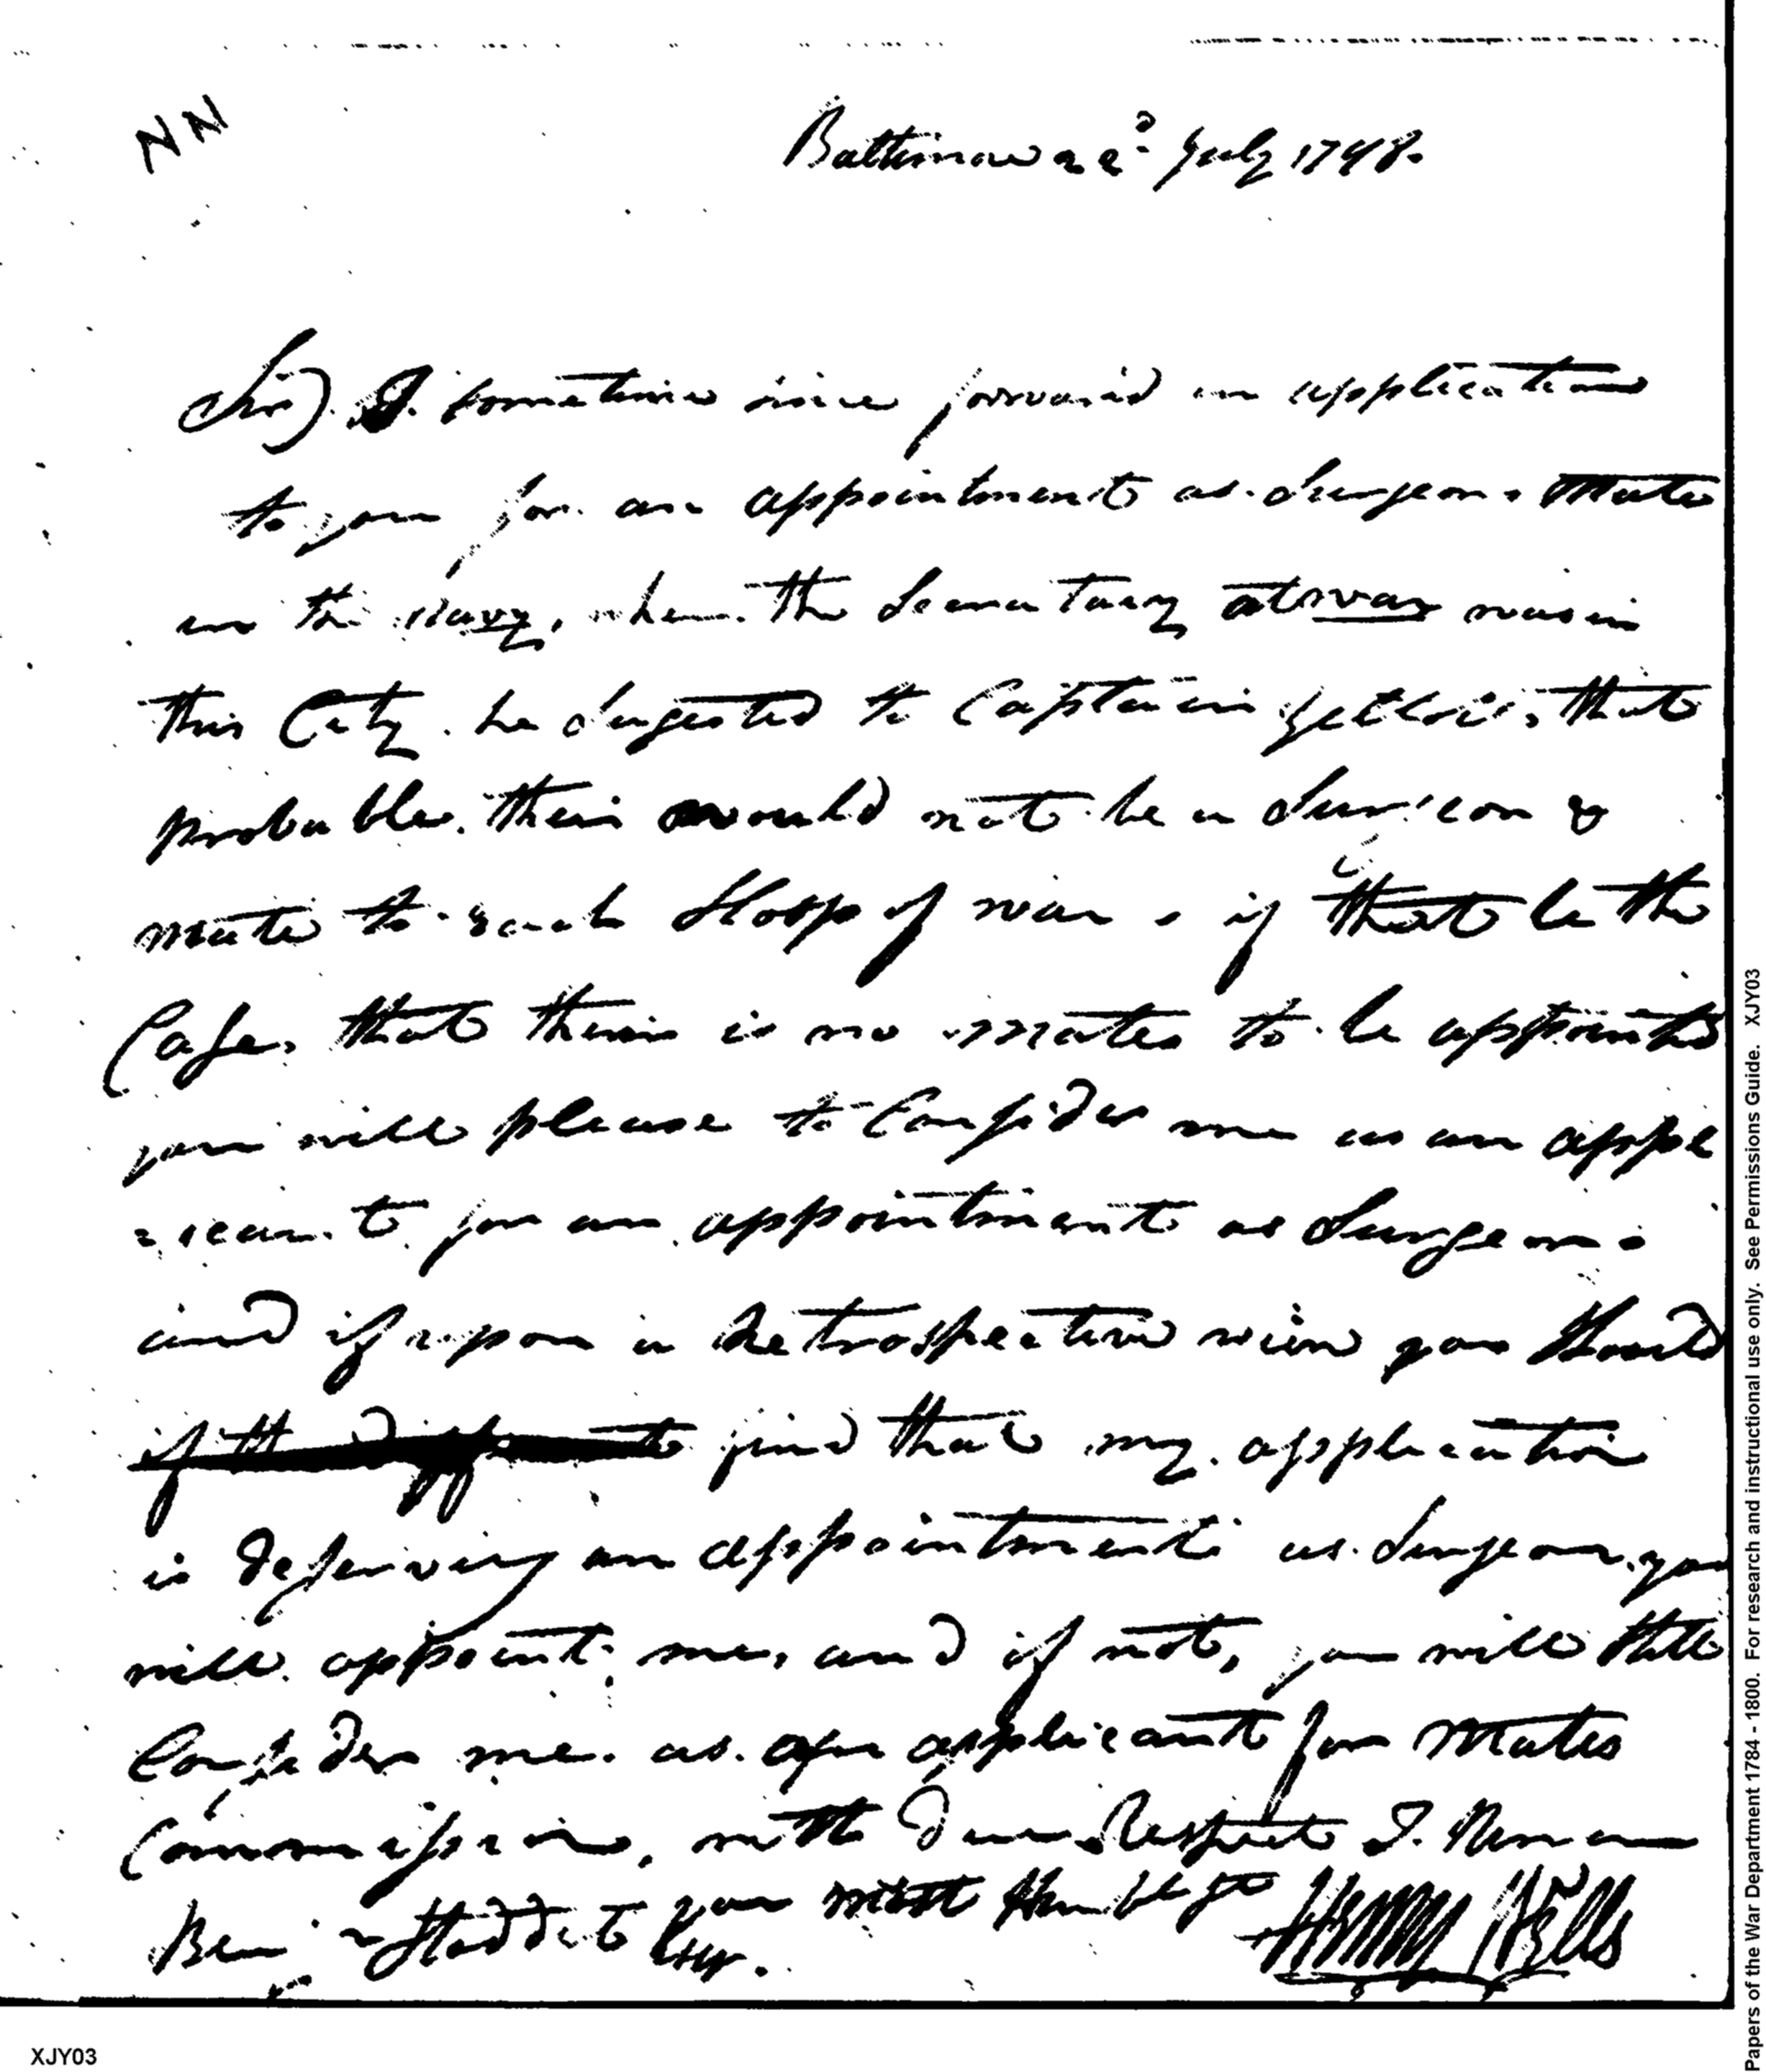 NN
Baltimore 22d July 1798.
Sir). I sometime since forward an application
to you for an appointment as Surgeons Mate
in the Navy, when the Secratary atwar was in
this City. he Sugested to Captain Yellott, that
probable. their would not be a Surgeon &
mate to each Sloop of war, if that be the
Case, that their is no mates to be appointd
you will please to Consider me as an appl
=icant for an appointment as Surgeon.
and if upon a Retrospective view you Should
find that my application
is deserving an appointment as Surgeon, you
will appoint me, and if not, you will Still
Consider me as an applicant for Mates
Commission, with due Respect I. Remain
your most Humble St
Benj Stoddert Esqr. Henry Wells
XJY03
Papers of the War Department 1784 - 1800. For research and instructional use only. See Permissions Guide. XJY03